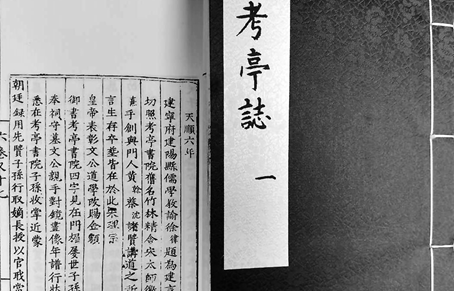 考亭誌
一
天順六年
建寧府建陽縣儒學教諭徐律題為建言
切照考亭書院舊名竹林精舍太師徽
子創與門人黃榦蔡沈諸賢講道之所
言生存卒塟皆在於此理宗
皇帝表彰文公道學改賜金額
御書考亭書院四字見在門世子孫
奉祠守墓文公親手對鏡畫像年譜行狀
悉在考亭書院子孫收掌近蒙
朝廷錄用先賢子孫行取嫡長授以官